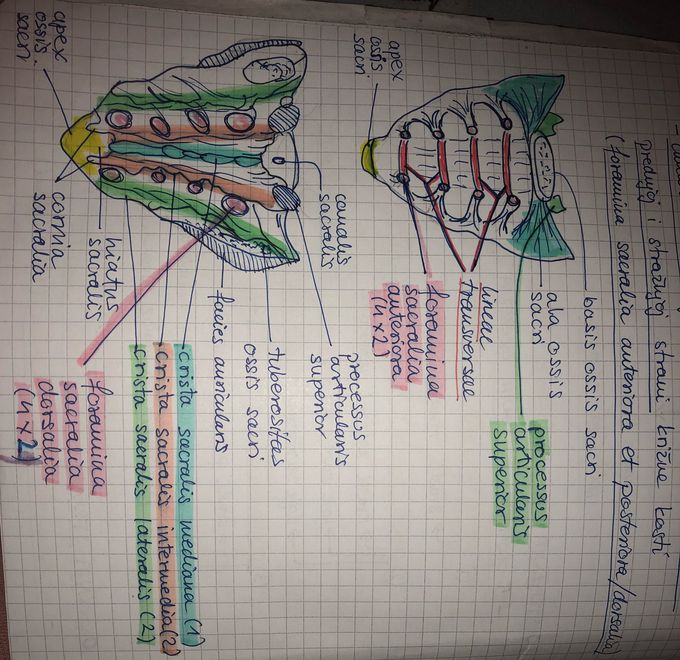 prednjoj i stražnjoj strani križne kosti
(foramina sacralia anteriora et posteriora/dorsalia)
basis ossis sacri
ala ossis
sacri
processus
articularis
superior
lineae
transversae
foramina
sacralia
anteriora
(4×2)
apex
ossis
sacri
processus
articularis
superior
canalis
sacralis
tuberositas
ossis sacri
facies auricularis
crista sacralis mediana (1)
crista sacralis intermedia (2)
crista sacralis lateralis (2)
foramina
sacralia
dorsalia
(4×2)
hiatus
sacralis
cornua
sacralia
apex
ossis
sacri